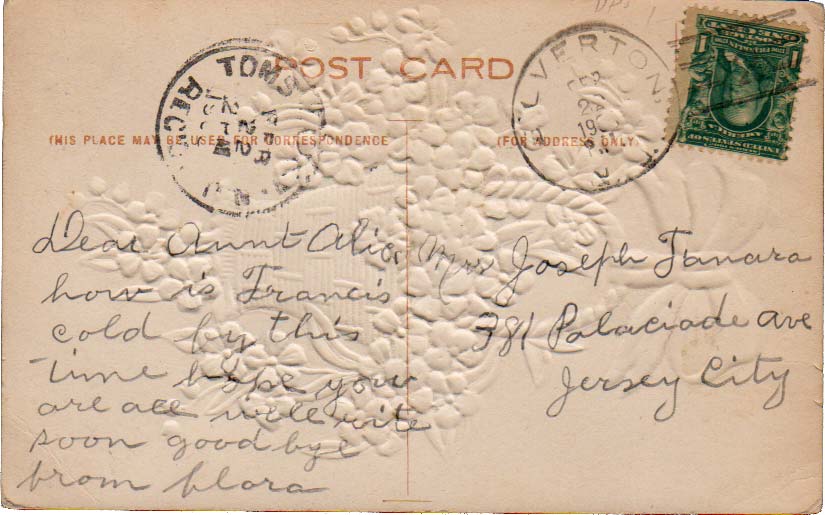 POST CARD
THIS PLACE MAY BE USED FOR CORRESPONDENCE
(FOR ADDRESS ONLY)
TOMS RIVER, N.J.
REC'D
SILVERTON,
Dear Aunt Alice
how is Francis
cold by this
time hope you
are all well rite
soon good bye
from flora
Mrs Joseph Tamara
381 Palaciade ave
Jersey City